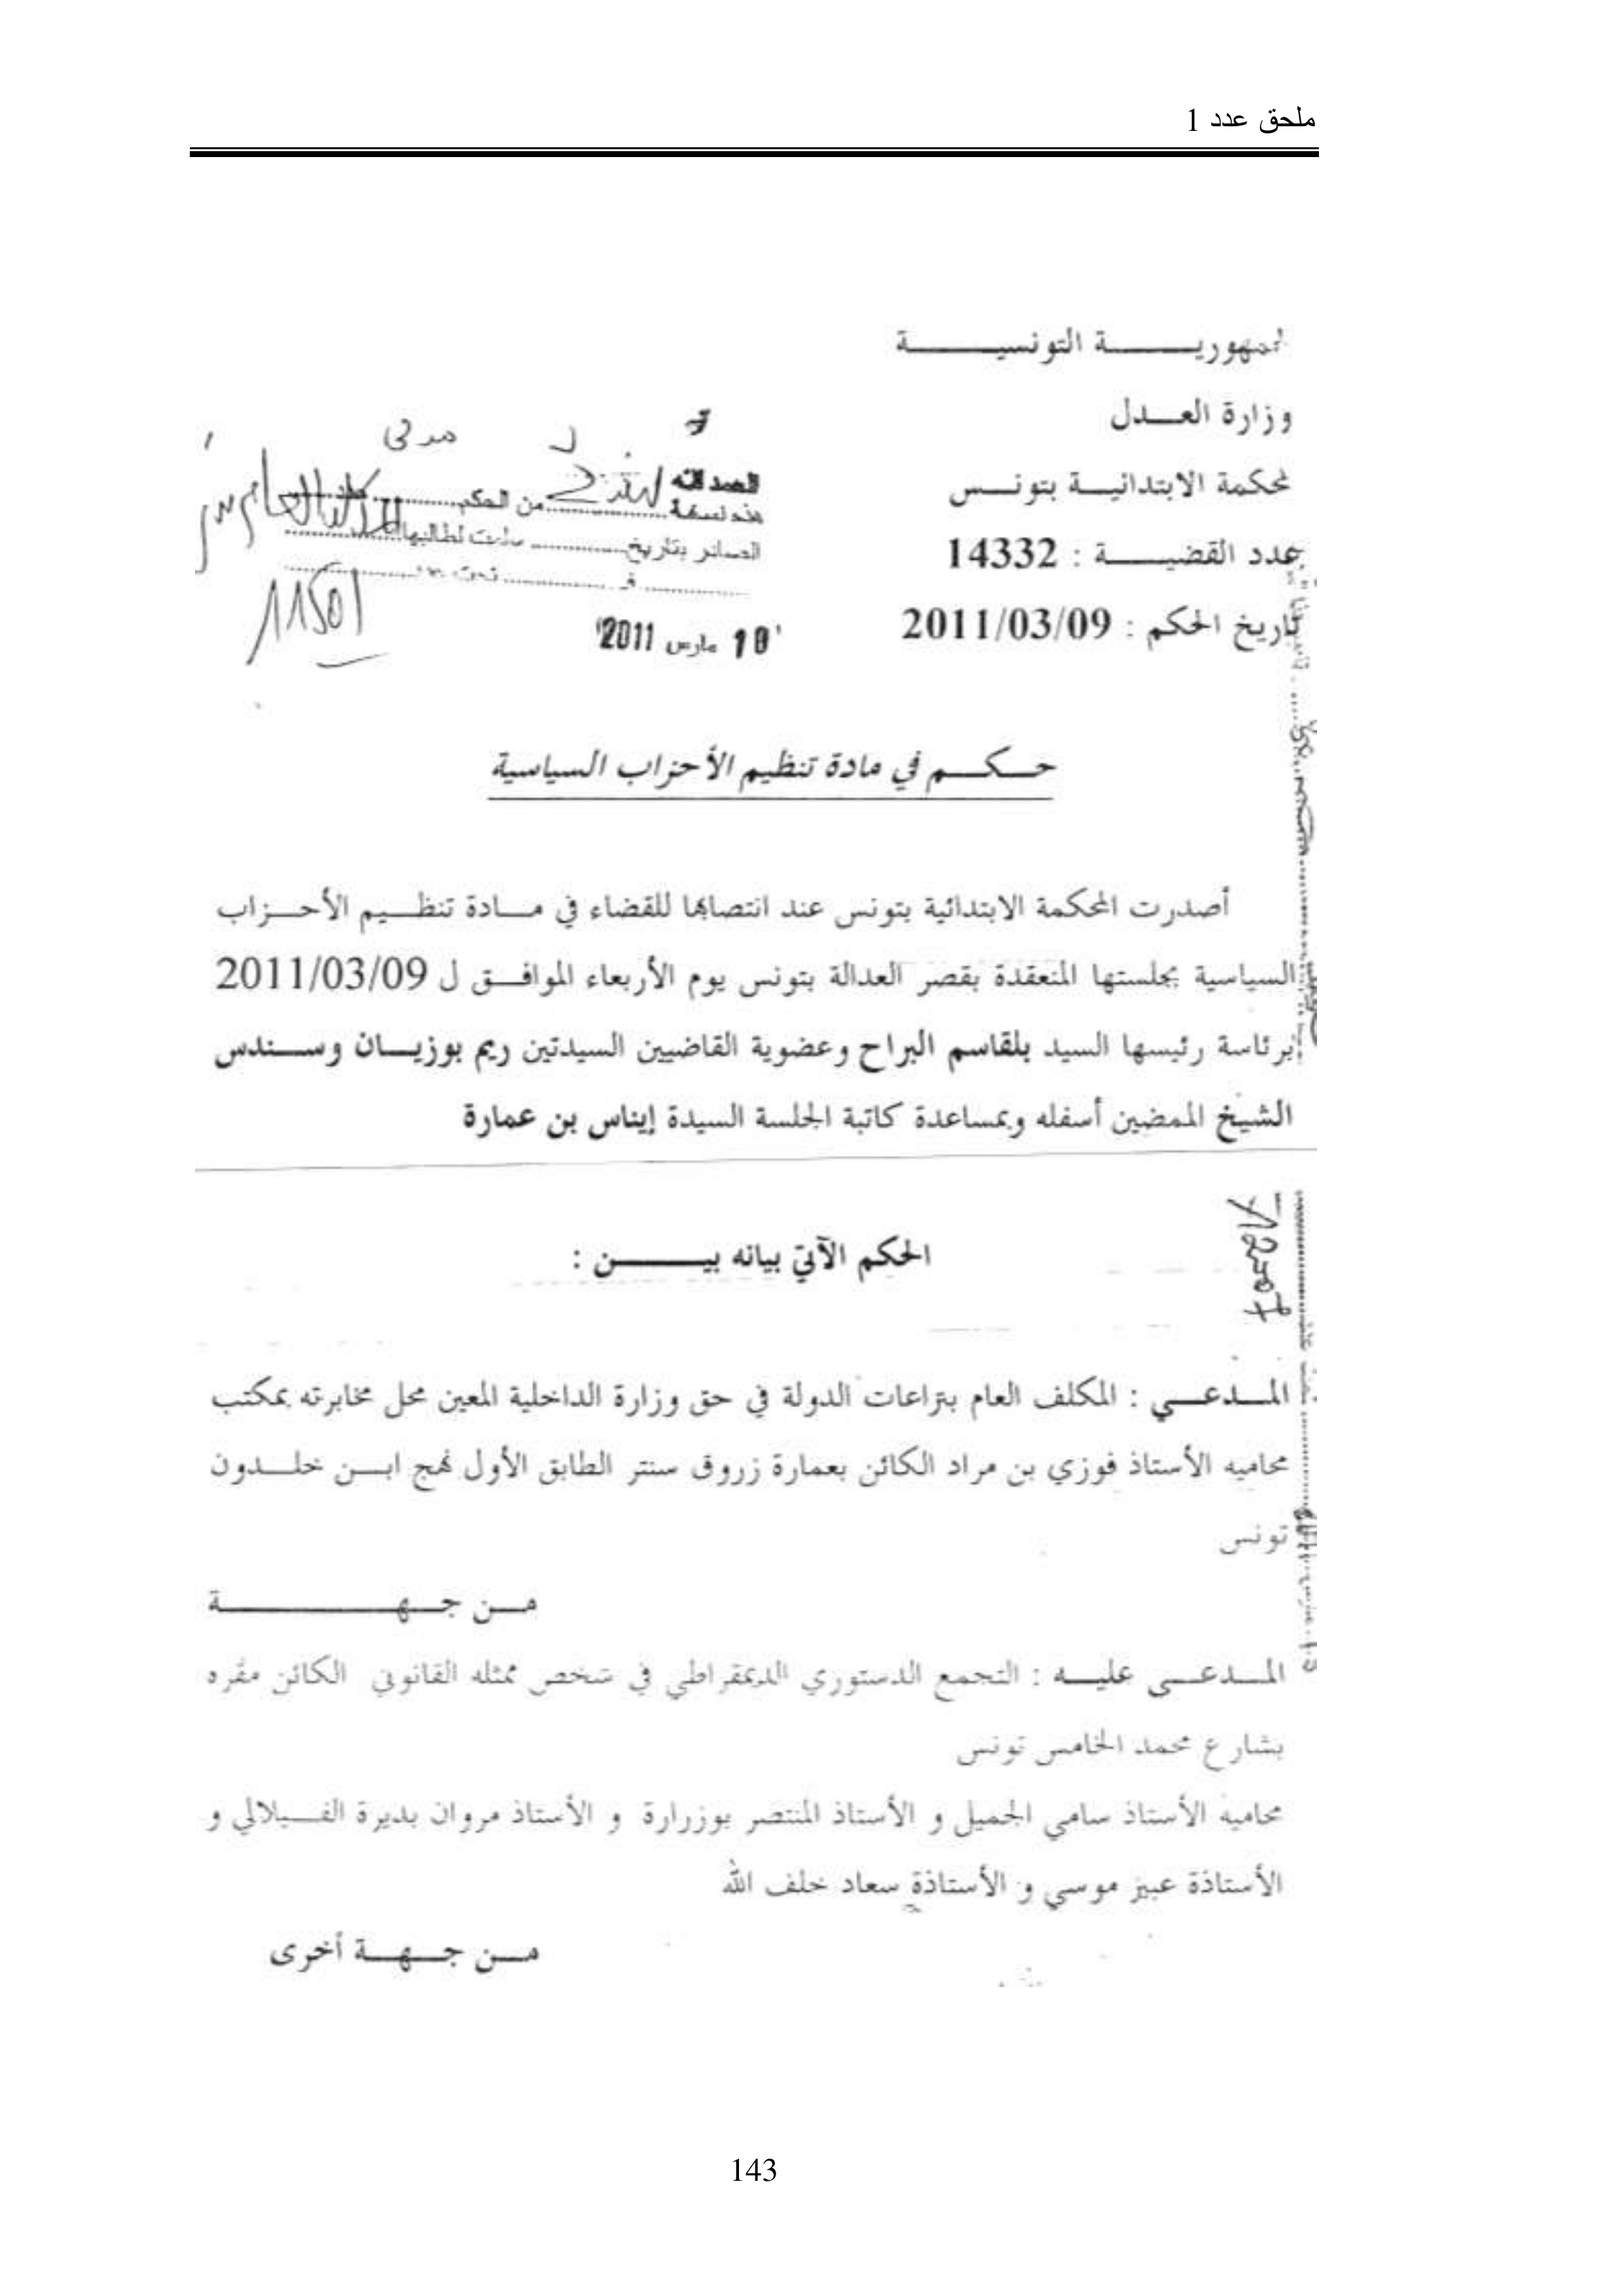 ملحق عدد 1
الجمهورية التونسية
وزارة العدل
المحكمة الابتدائية بتونس
عدد القضية : 14332
تاريخ الحكم : 2011/03/09
الحمد لله
هذه نسخة من الحكم
الصادر بتاريخ سلمت لطالبها
10 مارس 2011
11501
حكم في مادة تنظيم الأحزاب السياسية
أصدرت المحكمة الابتدائية بتونس عند انتصابها للقضاء في مادة تنظيم الأحزاب
السياسية بجلستها المنعقدة بقصر العدالة بتونس يوم الأربعاء الموافق ل 2011/03/09
برئاسة رئيسها السيد بلقاسم البراح وعضوية القاضيين السيدتين ريم بوزيان وسندس
الشيخ الممضين أسفله وبمساعدة كاتبة الجلسة السيدة إيناس بن عمارة
الحكم الآتي بيانه بين :
المدعي : المكلف العام بنزاعات الدولة في حق وزارة الداخلية المعين محل مخابرته بمكتب
محاميه الأستاذ فوزي بن مراد الكائن بعمارة زروق سنتر الطابق الأول نهج ابن خلدون
تونس
من جهة
المدعى عليه : التجمع الدستوري الديمقراطي في شخص ممثله القانوني الكائن مقره
بشارع محمد الخامس تونس
محاميه الأستاذ سامي الجميل و الأستاذ المنتصر بوزرارة و الأستاذ مروان بديرة الفيلالي و
الأستاذة عبير موسي و الأستاذة سعاد خلف الله
من جهة أخرى
143